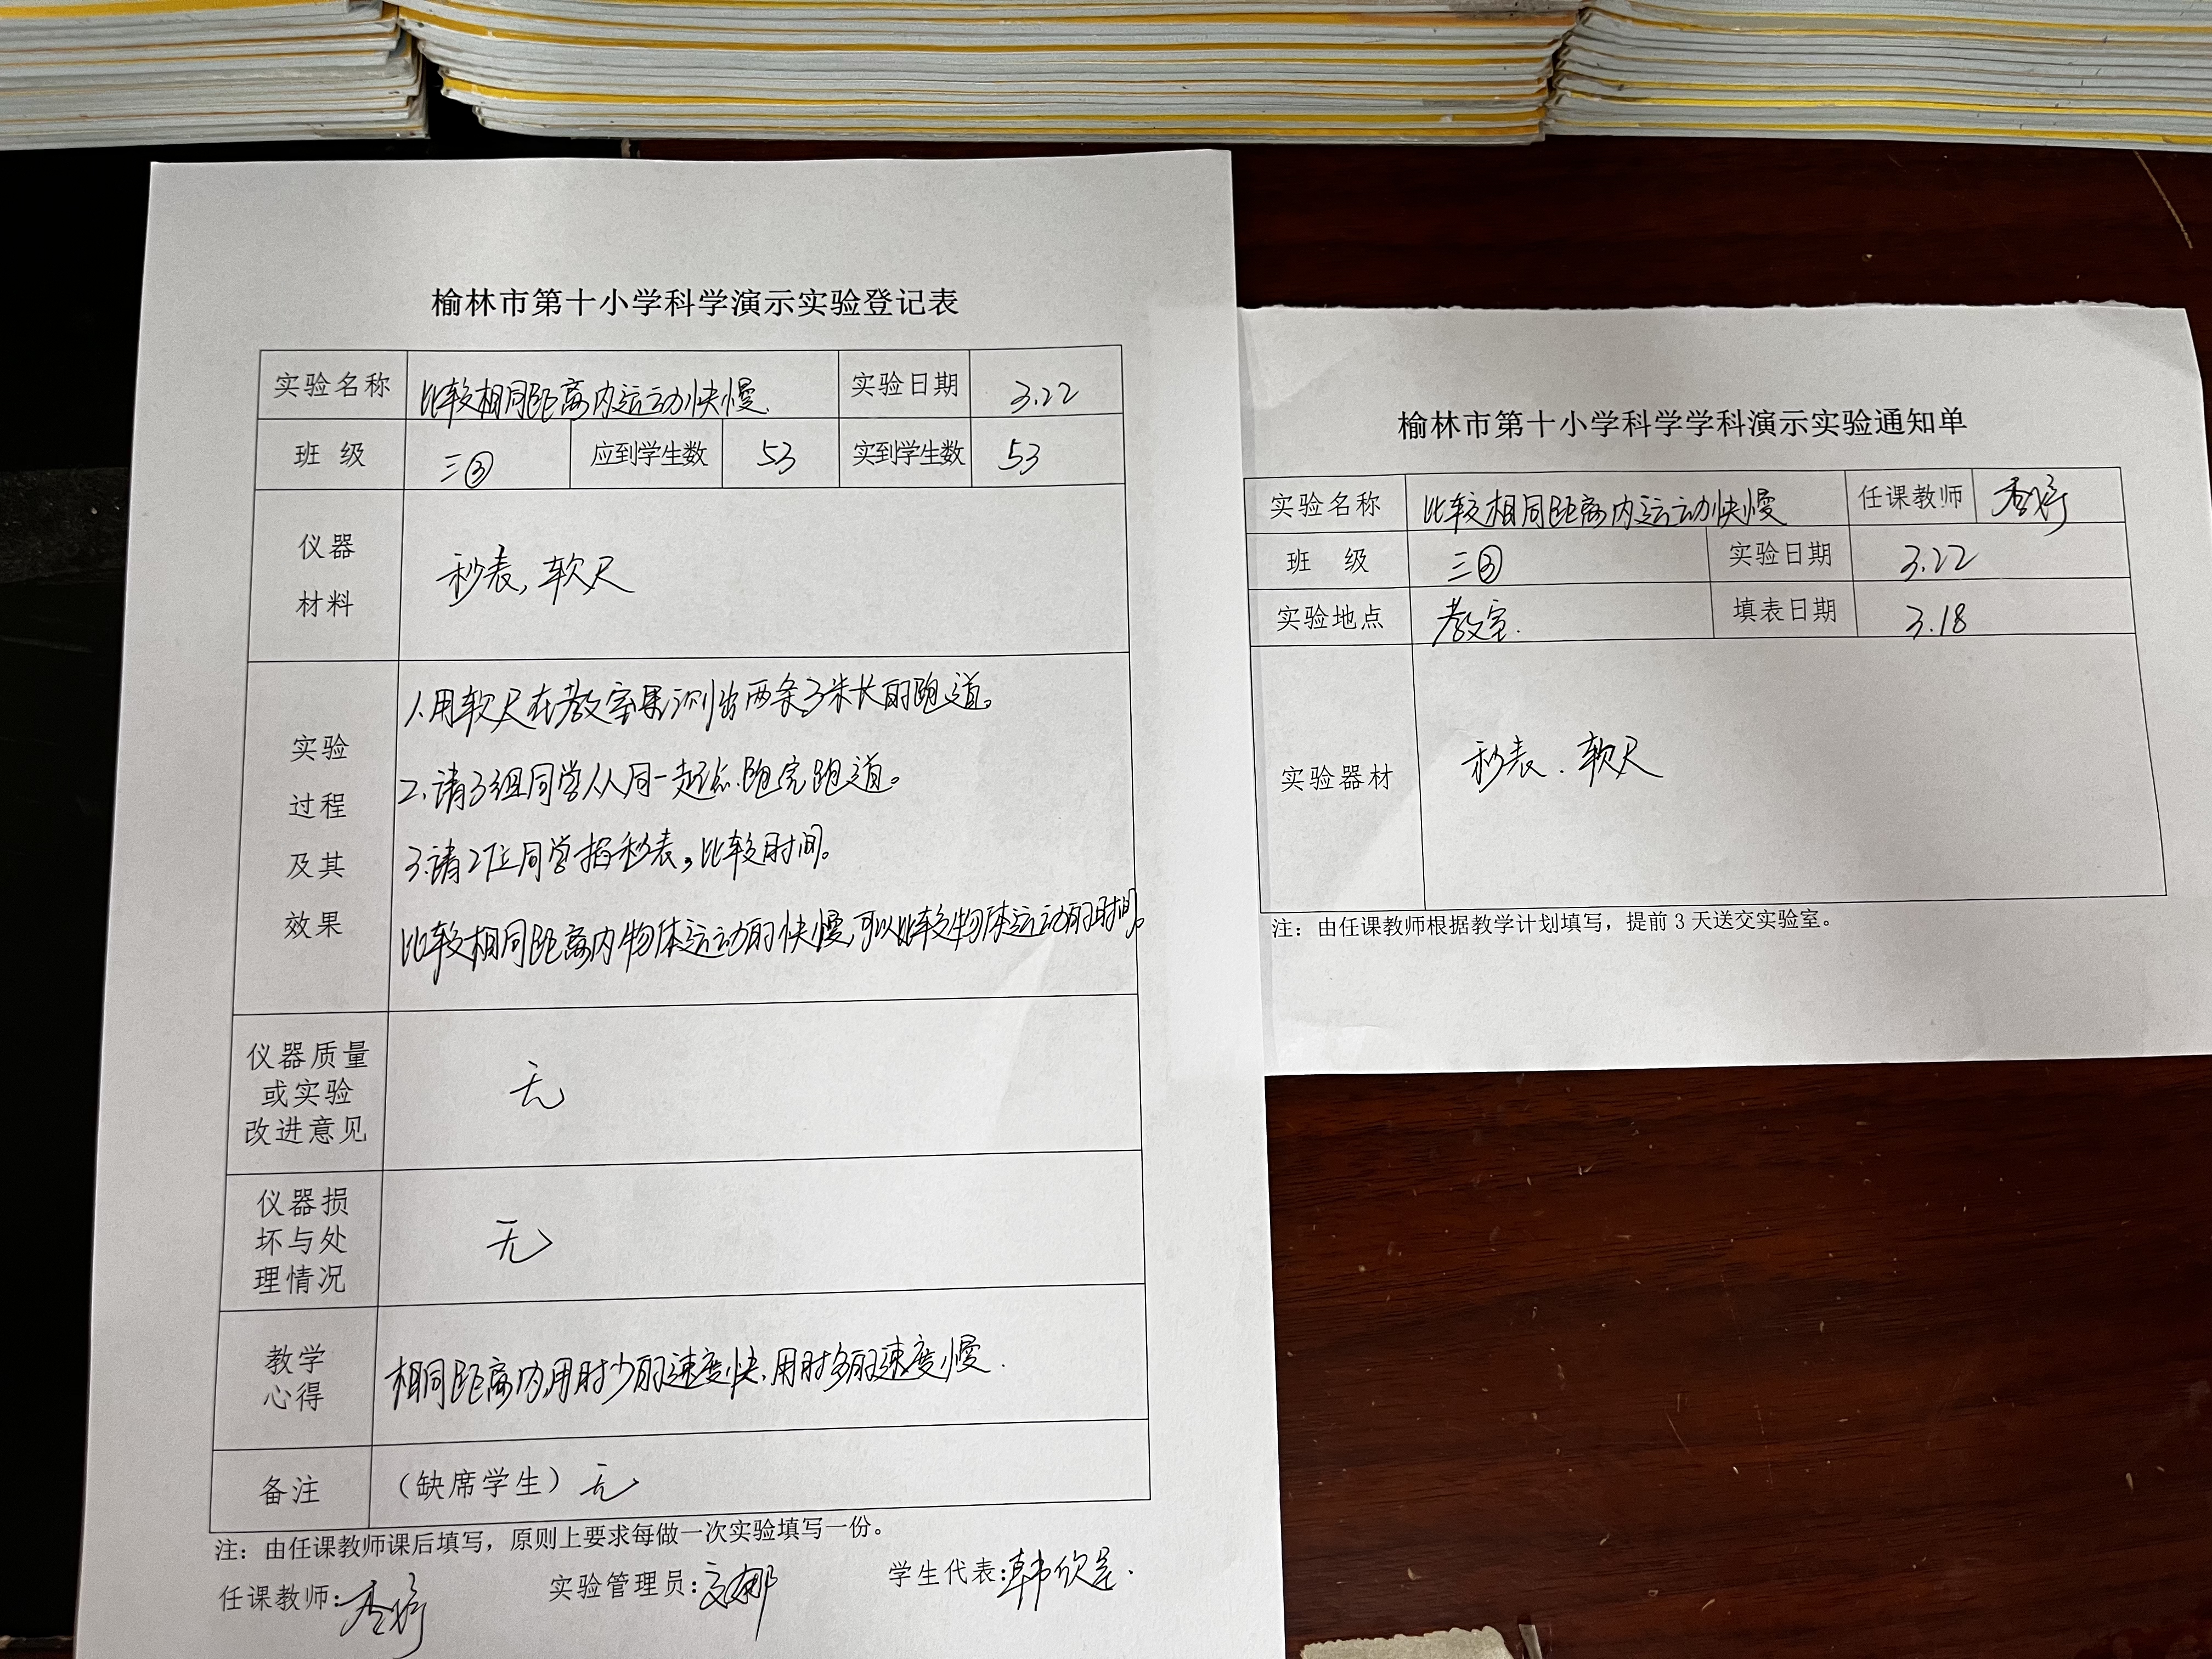 榆林市第十小学科学演示实验登记表
实验名称 比较相同距离内运动快慢. 实验日期 3.22
班 级 三③ 应到学生数 53 实到学生数 53
仪器
材料
秒表, 软尺
实验
过程
及其
效果
1.用软尺在教室里测出两条3米长的跑道。
2.请3组同学从同一起点跑完跑道。
3.请2位同学掐秒表,比较时间。
比较相同距离内物体运动的快慢,可以比较物体运动的时间。
仪器质量
或实验
改进意见
无
仪器损
坏与处
理情况
无
教学
心得
相同距离内,用时少的速度快,用时多的速度慢.
备注 (缺席学生) 无
注: 由任课教师课后填写, 原则上要求每做一次实验填写一份。
任课教师: 实验管理员: 学生代表:
榆林市第十小学科学学科演示实验通知单
实验名称 比较相同距离内运动快慢 任课教师
班 级 三③ 实验日期 3.22
实验地点 教室. 填表日期 3.18
实验器材 秒表. 软尺
注: 由任课教师根据教学计划填写, 提前 3 天送交实验室。